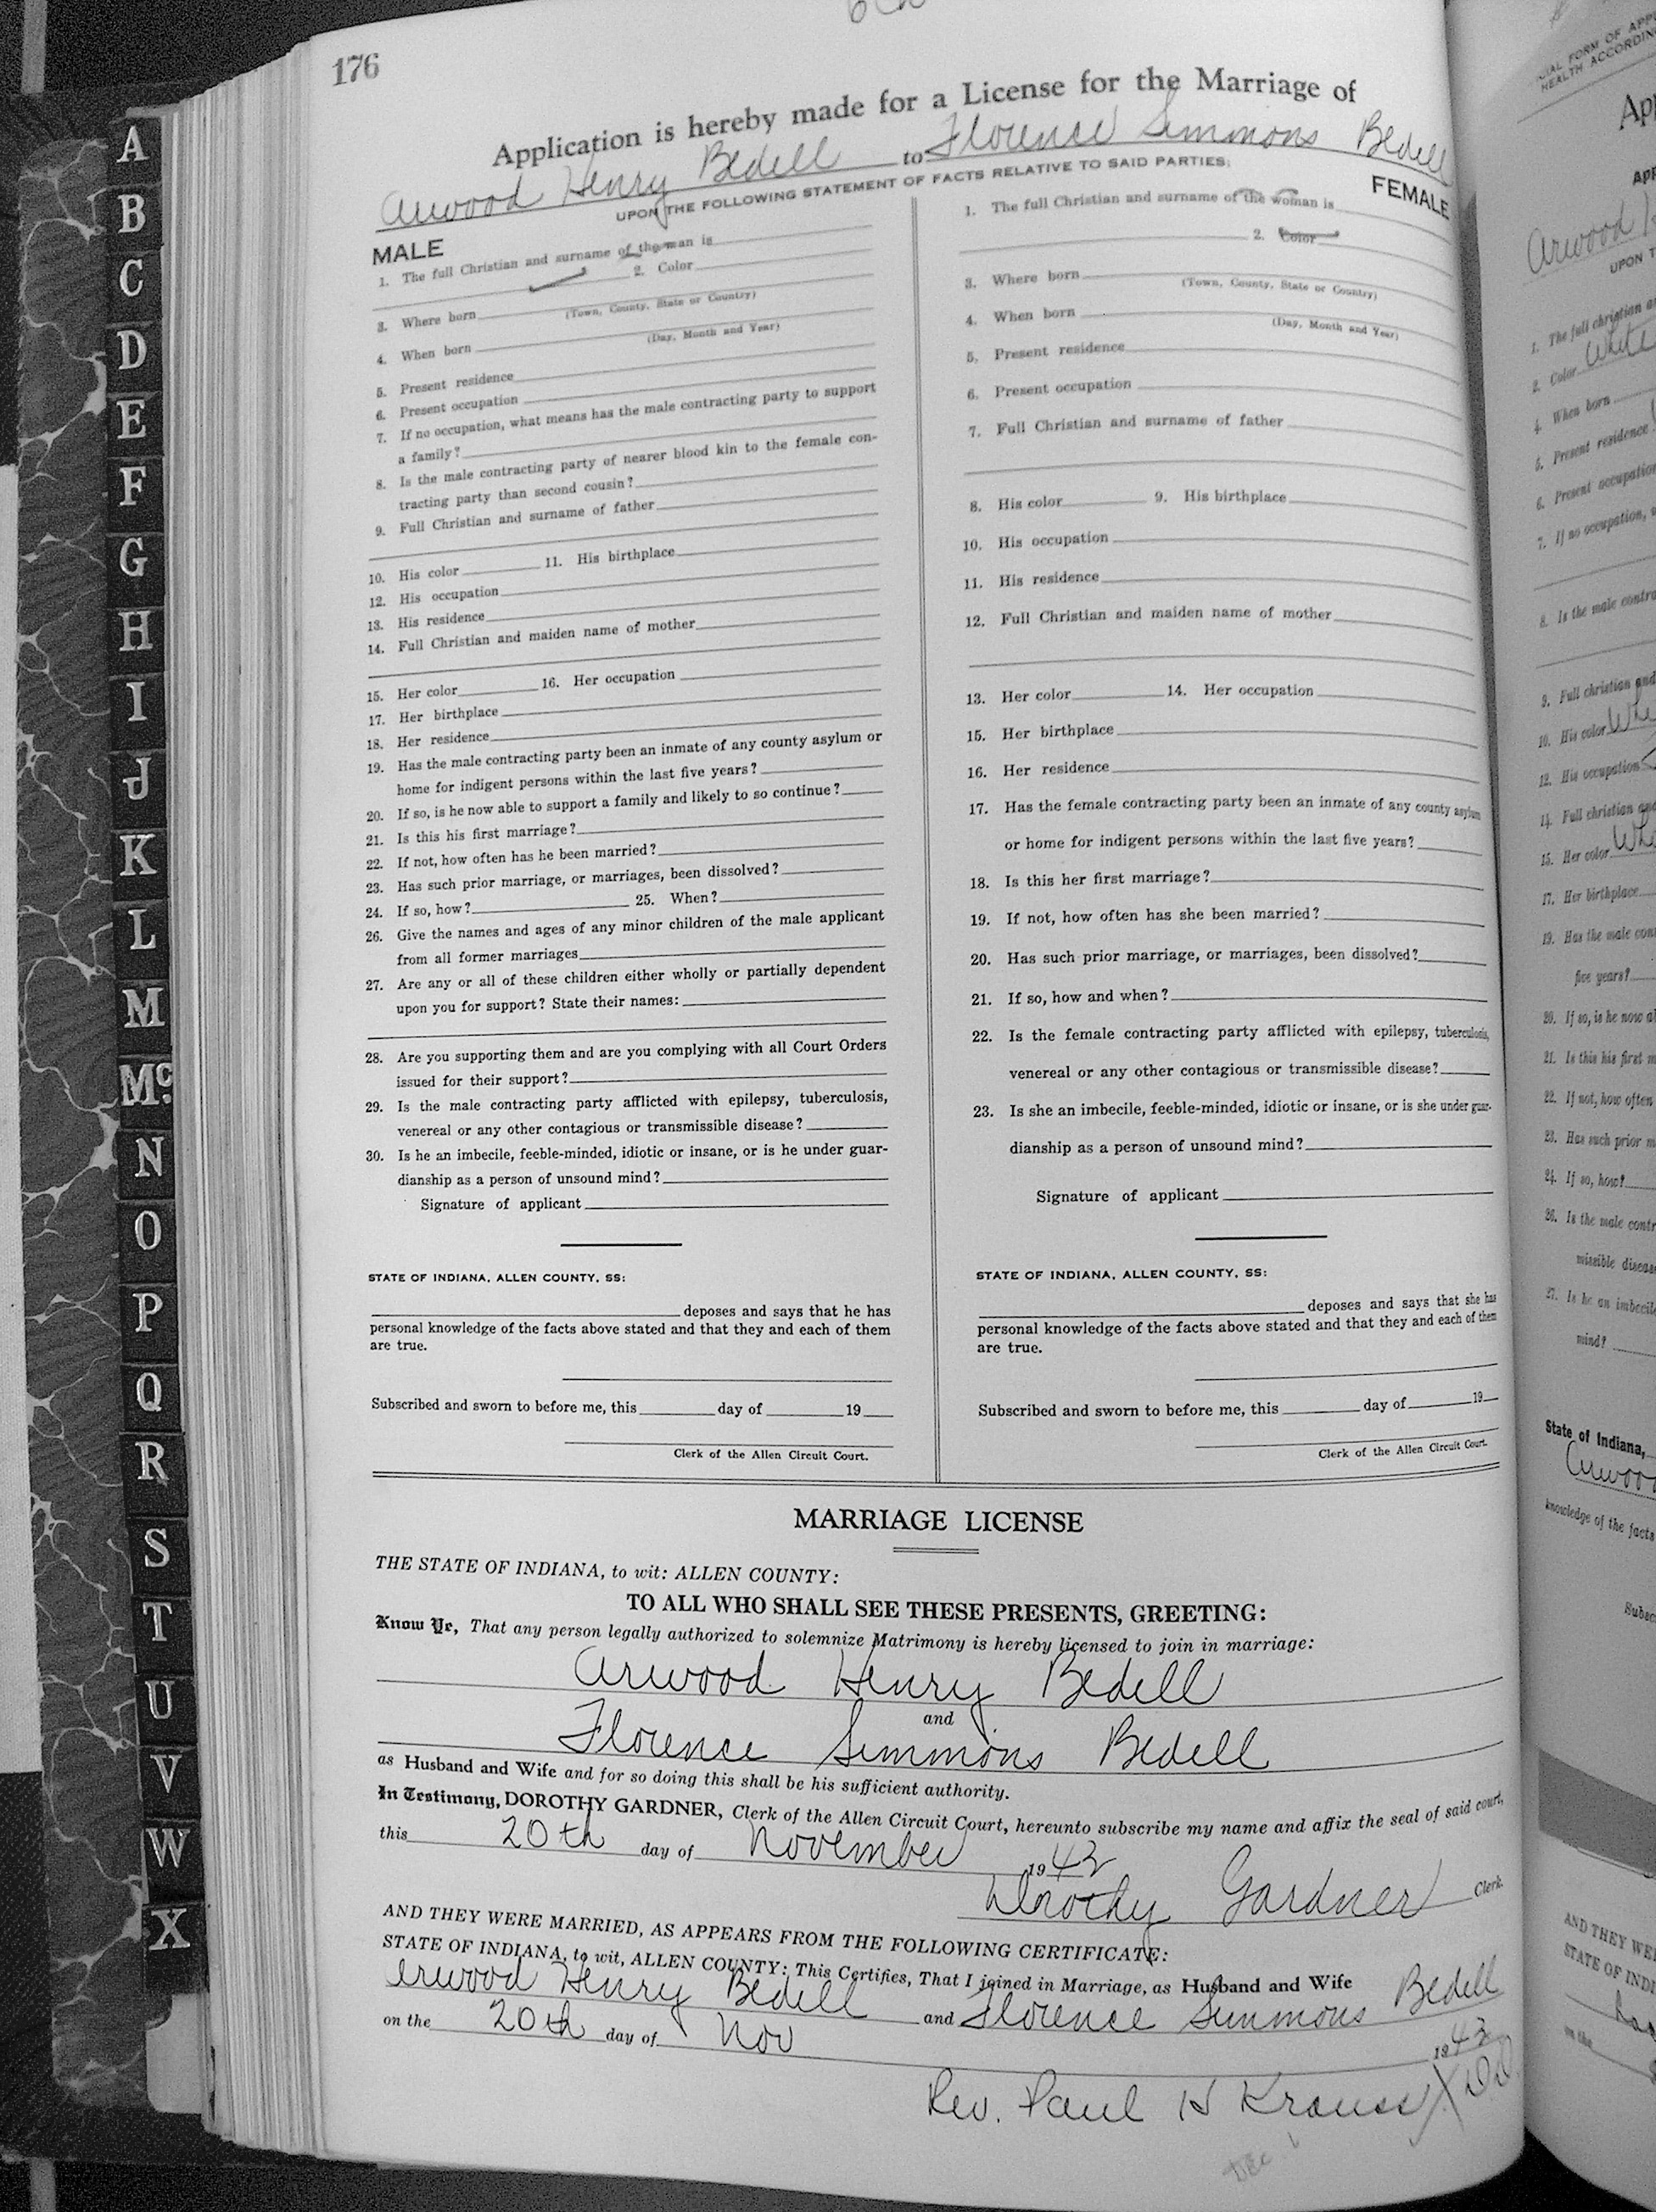 176
Application is hereby made for a License for the Marriage of
Arwood Henry Bedell to Florence Simmons Bedell
UPON THE FOLLOWING STATEMENT OF FACTS RELATIVE TO SAID PARTIES:
MALE
1. The full Christian and surname of the man is
2. Color
3. Where born
(Town, County, State or Country)
4. When born
(Day, Month and Year)
5. Present residence
6. Present occupation
7. If no occupation, what means has the male contracting party to support
a family?
8. Is the male contracting party of nearer blood kin to the female con-
tracting party than second cousin?
9. Full Christian and surname of father
10. His color 11. His birthplace
12. His occupation
13. His residence
14. Full Christian and maiden name of mother
15. Her color 16. Her occupation
17. Her birthplace
18. Her residence
19. Has the male contracting party been an inmate of any county asylum or
home for indigent persons within the last five years?
20. If so, is he now able to support a family and likely to so continue?
21. Is this his first marriage?
22. If not, how often has he been married?
23. Has such prior marriage, or marriages, been dissolved?
24. If so, how? 25. When?
26. Give the names and ages of any minor children of the male applicant
from all former marriages
27. Are any or all of these children either wholly or partially dependent
upon you for support? State their names:
28. Are you supporting them and are you complying with all Court Orders
issued for their support?
29. Is the male contracting party afflicted with epilepsy, tuberculosis,
venereal or any other contagious or transmissible disease?
30. Is he an imbecile, feeble-minded, idiotic or insane, or is he under guar-
dianship as a person of unsound mind?
Signature of applicant
STATE OF INDIANA, ALLEN COUNTY, SS:
deposes and says that he has
personal knowledge of the facts above stated and that they and each of them
are true.
Subscribed and sworn to before me, this day of 19
Clerk of the Allen Circuit Court.
FEMALE
1. The full Christian and surname of the woman is
2. Color
3. Where born
(Town, County, State or Country)
4. When born
(Day, Month and Year)
5. Present residence
6. Present occupation
7. Full Christian and surname of father
8. His color 9. His birthplace
10. His occupation
11. His residence
12. Full Christian and maiden name of mother
13. Her color 14. Her occupation
15. Her birthplace
16. Her residence
17. Has the female contracting party been an inmate of any county asylum
or home for indigent persons within the last five years?
18. Is this her first marriage?
19. If not, how often has she been married?
20. Has such prior marriage, or marriages, been dissolved?
21. If so, how and when?
22. Is the female contracting party afflicted with epilepsy, tuberculosis,
venereal or any other contagious or transmissible disease?
23. Is she an imbecile, feeble-minded, idiotic or insane, or is she under guar-
dianship as a person of unsound mind?
Signature of applicant
STATE OF INDIANA, ALLEN COUNTY, SS:
deposes and says that she has
personal knowledge of the facts above stated and that they and each of them
are true.
Subscribed and sworn to before me, this day of 19
Clerk of the Allen Circuit Court.
MARRIAGE LICENSE
THE STATE OF INDIANA, to wit: ALLEN COUNTY:
TO ALL WHO SHALL SEE THESE PRESENTS, GREETING:
Know Ye, That any person legally authorized to solemnize Matrimony is hereby licensed to join in marriage:
Arwood Henry Bedell
and
Florence Simmons Bedell
as Husband and Wife and for so doing this shall be his sufficient authority.
In Testimony, DOROTHY GARDNER, Clerk of the Allen Circuit Court, hereunto subscribe my name and affix the seal of said court,
this 20th day of November 1943
Dorothy Gardner Clerk.
AND THEY WERE MARRIED, AS APPEARS FROM THE FOLLOWING CERTIFICATE:
STATE OF INDIANA, to wit, ALLEN COUNTY: This Certifies, That I joined in Marriage, as Husband and Wife
Arwood Henry Bedell and Florence Simmons Bedell
on the 20th day of Nov 1943
Rev. Paul H Krauss DD
DEC 1
A
B
C
D
E
F
G
H
I
J
K
L
M
Mc.
N
O
P
Q
R
S
T
U
V
W
X